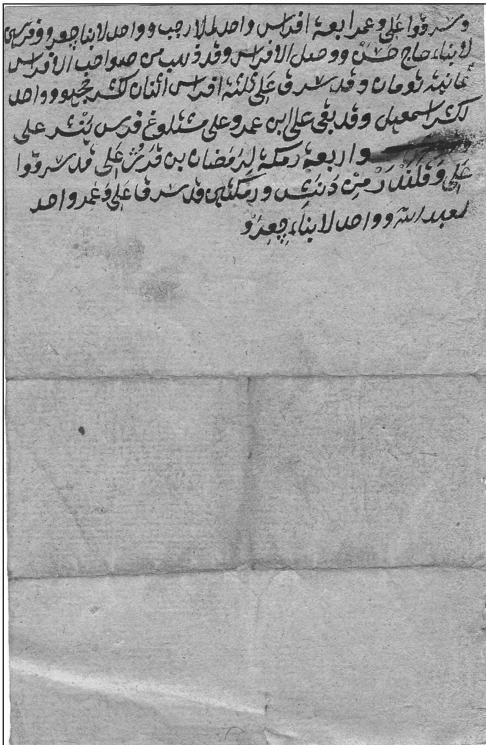 وسرقوا علي وعمر اربعة افراس واحد لملا رجب وواحد لابنا جعر وفرس
لابناء حاج حسن ووصل الافراس وقد ذهب من صواحب الافراس
ثمانية تومان وقد سرق علي ثلثة افراس اثنان لكشر محمد وواحد
لكشر اسمعيل وقد بقي علي ابن عمر وعلي فرس علي
واربعة رمكة لرمضان بن علي قد سرقوا
علي وقلندر من ورمكتين قد سرق علي وعمر واحد
لعبد الله وواحد لابناء